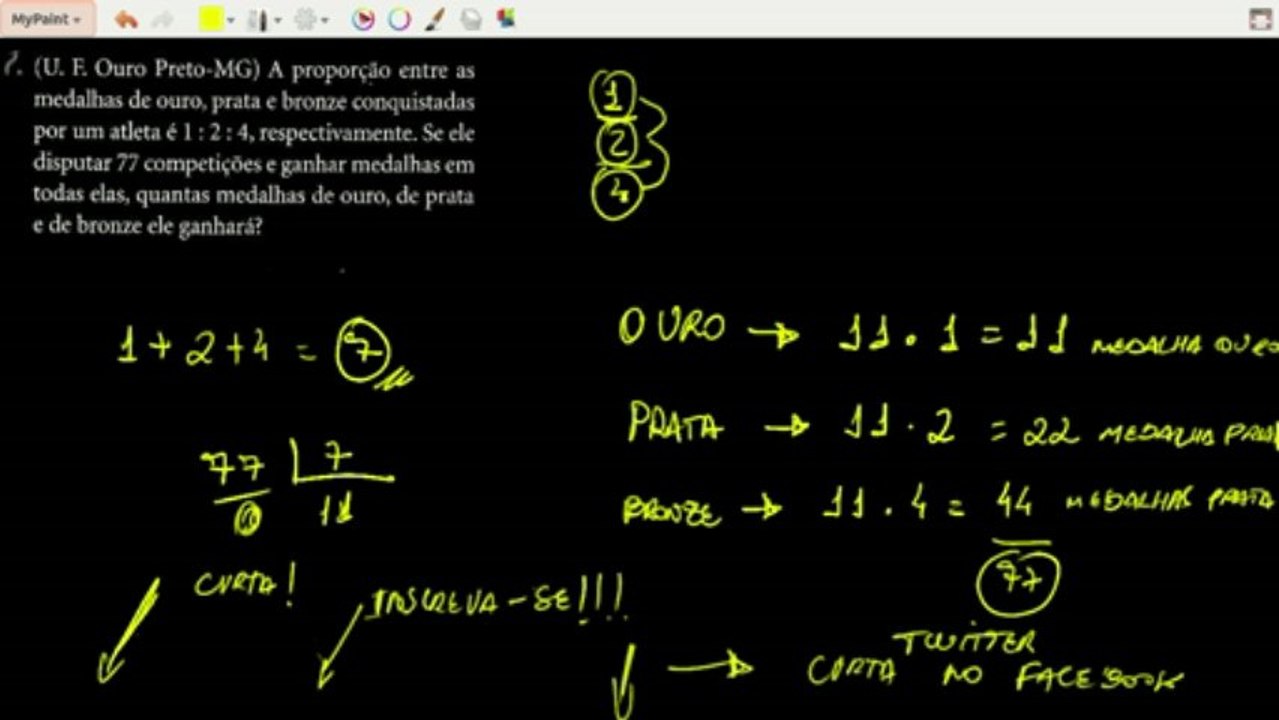 MyPaint
2. (U. F. Ouro Preto-MG) A proporção entre as
medalhas de ouro, prata e bronze conquistadas
por um atleta é 1 : 2 : 4, respectivamente. Se ele
disputar 77 competições e ganhar medalhas em
todas elas, quantas medalhas de ouro, de prata
e de bronze ele ganhará?
1
2
4
1 + 2 + 4 = 7
77 7
0 11
OURO → 11 . 1 = 11 MEDALHA OURO
PRATA → 11 . 2 = 22 MEDALHA PRATA
BRONZE → 11 . 4 = 44 MEDALHAS PRATA
77
CURTA!
INSCREVA-SE!!!
TWITTER
→ CURTA NO FACEBOOK